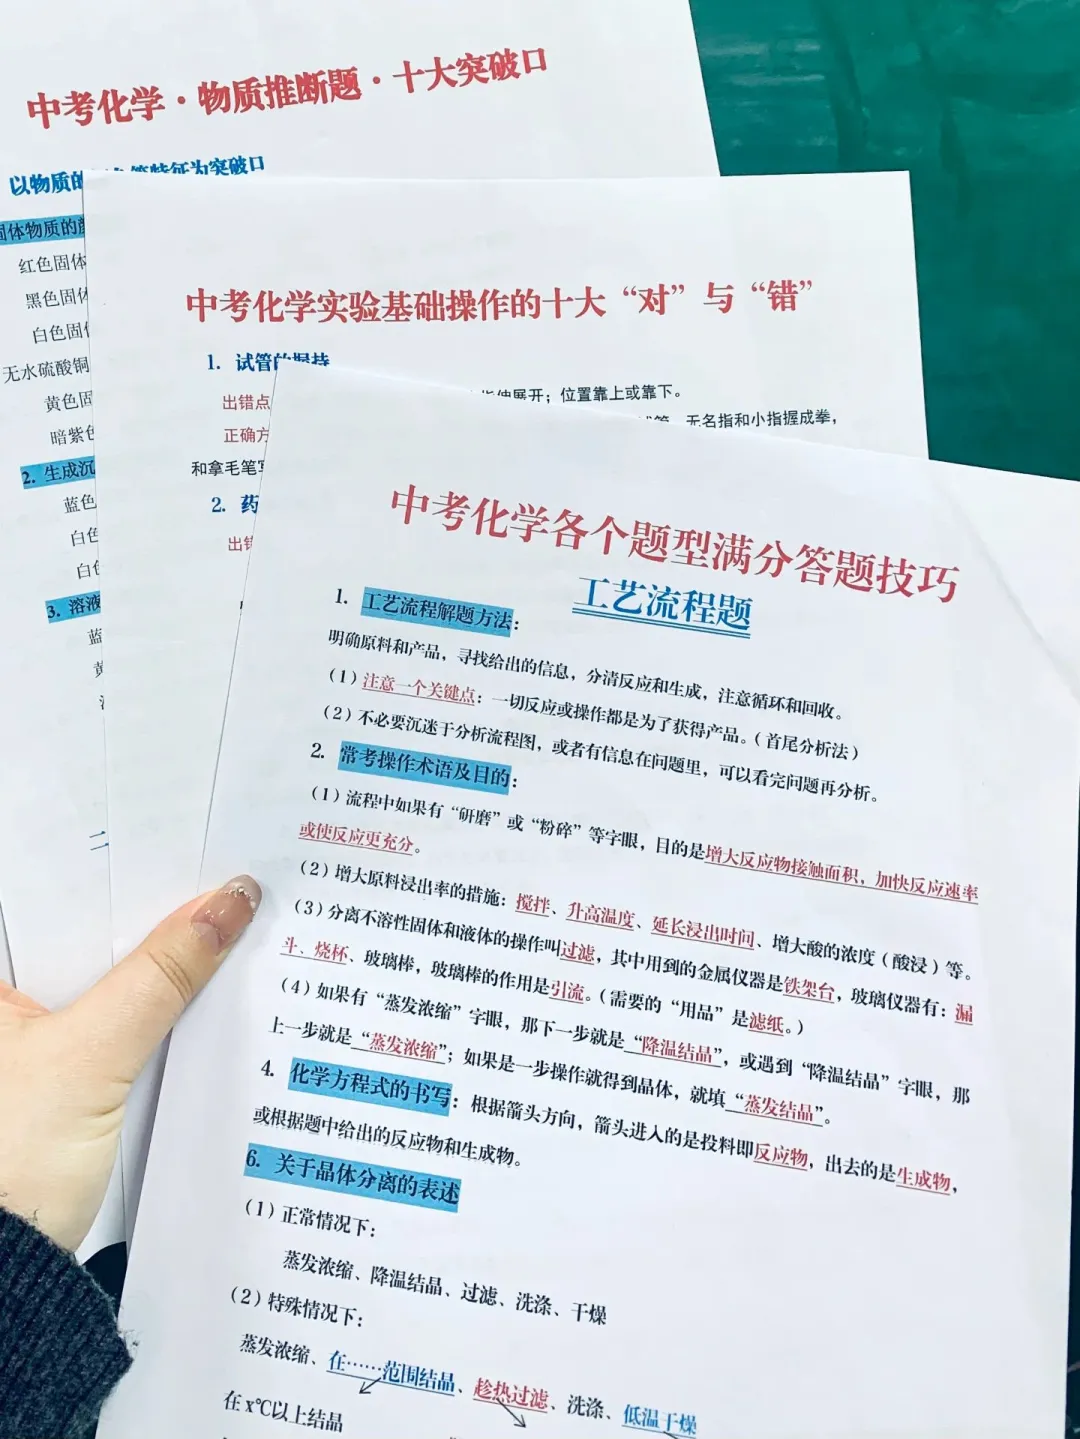 中考化学·物质推断题·十大突破口
以物质的
特征为突破口
固体物质的颜
红色固体
黑色固体
白色固体
无水硫酸铜
黄色固
暗紫色
2. 生成沉
蓝色
白色
白色
3. 溶液
蓝
黄
二
中考化学实验基础操作的十大“对”与“错”
1. 试管的握持
出错点
指伸展开；位置靠上或靠下。
正确方
试管，无名指和小指握成拳，
和拿毛笔写
2. 药
出错
中考化学各个题型满分答题技巧
工艺流程题
1. 工艺流程解题方法：
明确原料和产品，寻找给出的信息，分清反应和生成，注意循环和回收。
（1）注意一个关键点：一切反应或操作都是为了获得产品。（首尾分析法）
（2）不必要沉迷于分析流程图，或者有信息在问题里，可以看完问题再分析。
2. 常考操作术语及目的：
（1）流程中如果有“研磨”或“粉碎”等字眼，目的是增大反应物接触面积，加快反应速率
或使反应更充分。
（2）增大原料浸出率的措施：搅拌、升高温度、延长浸出时间、增大酸的浓度（酸浸）等。
（3）分离不溶性固体和液体的操作叫过滤，其中用到的金属仪器是铁架台，玻璃仪器有：漏
斗、烧杯、玻璃棒，玻璃棒的作用是引流。（需要的“用品”是滤纸。）
（4）如果有“蒸发浓缩”字眼，那下一步就是“降温结晶”，或遇到“降温结晶”字眼，那
上一步就是“蒸发浓缩”；如果是一步操作就得到晶体，就填“蒸发结晶”。
4. 化学方程式的书写：根据箭头方向，箭头进入的是投料即反应物，出去的是生成物，
或根据题中给出的反应物和生成物。
6. 关于晶体分离的表述
（1）正常情况下：
蒸发浓缩、降温结晶、过滤、洗涤、干燥
（2）特殊情况下：
蒸发浓缩、在……范围结晶、趁热过滤、洗涤、低温干燥
在 x℃以上结晶